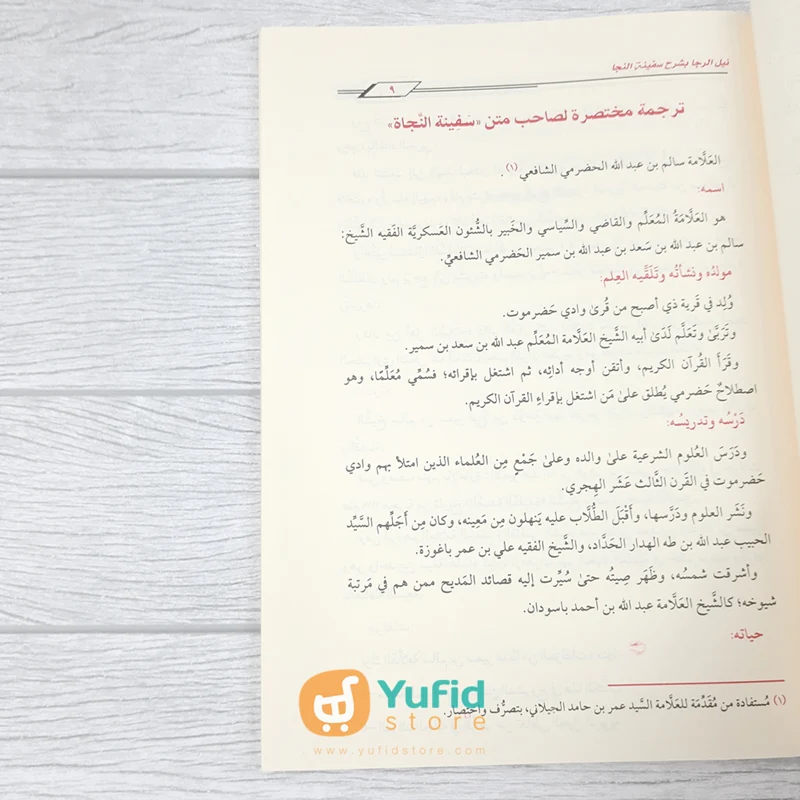 نيل الرجا بشرح سفينة النجا
٩
ترجمة مختصرة لصاحب متن «سَفِينة النَّجاة»
العَلَّامة سالم بن عبد الله الحضرمي الشافعي(١).
اسمه:
هو العَلَّامَةُ المُعَلِّم والقاضي والسِّياسي والخَبير بالشُّئون العَسكريَّة الفَقيه الشَّيخ:
سالم بن عبد الله بن سَعد بن عبد الله بن سمير الحَضرمي الشافعيُّ.
مولدُه ونشأتُه وتَلَقِّيه العِلم:
وُلِد في قَرية ذي أصبح من قُرىٰ وادي حَضرموت.
وتَرَبَّىٰ وتَعَلَّم لَدَىٰ أبيه الشَّيخ العَلَّامة المُعَلِّم عبد الله بن سعد بن سمير.
وقَرَأَ القُرآن الكريم، وأتقن أوجه أدائِه، ثم اشتغل بإقرائه؛ فسُمِّي مُعَلِّمًا، وهو
اصطلاحٌ حَضرمي يُطلق علىٰ مَن اشتغل بإقراءِ القرآن الكريم.
دَرْسُه وتدريسُه:
ودَرَسَ العُلوم الشرعية علىٰ والده وعلىٰ جَمْعٍ مِن العُلماء الذين امتلأ بهم وادي
حَضرموت في القَرن الثَّالث عَشَر الهِجري.
ونَشَر العلوم ودَرَّسها، وأَقْبَلَ الطُّلَّاب عليه يَنهلون مِن مَعِينه، وكان مِن أَجَلِّهم السَّيِّد
الحبيب عبد الله بن طه الهدار الحَدَّاد، والشَّيخ الفقيه علي بن عمر باغوزة.
وأشرقت شمسُه، وظَهَر صِيتُه حتىٰ سُيِّرت إليه قصائد المَديح ممن هم في مَرتبة
شيوخه؛ كالشَّيخ العَلَّامة عبد الله بن أحمد باسودان.
حياته:
(١) مُستفادة من مُقَدِّمَة للعَلَّامة السَّيد عمر بن حامد الجيلاني، بتصرُّف واختِصار.
Yufid
store
www.yufidstore.com